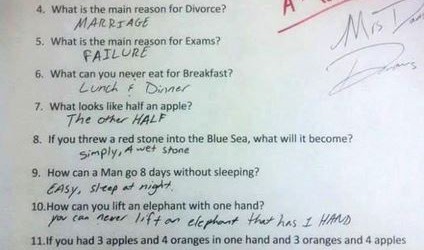 4. What is the main reason for Divorce?
MARRIAGE
5. What is the main reason for Exams?
FAILURE
6. What can you never eat for Breakfast?
Lunch & Dinner
7. What looks like half an apple?
The other HALF
8. If you threw a red stone into the Blue Sea, what will it become?
Simply, A wet stone
9. How can a Man go 8 days without sleeping?
EASY, sleep at night.
10.How can you lift an elephant with one hand?
you can never lift an elephant that has 1 HAND
11.If you had 3 apples and 4 oranges in one hand and 3 oranges and 4 apples
A
Mrs